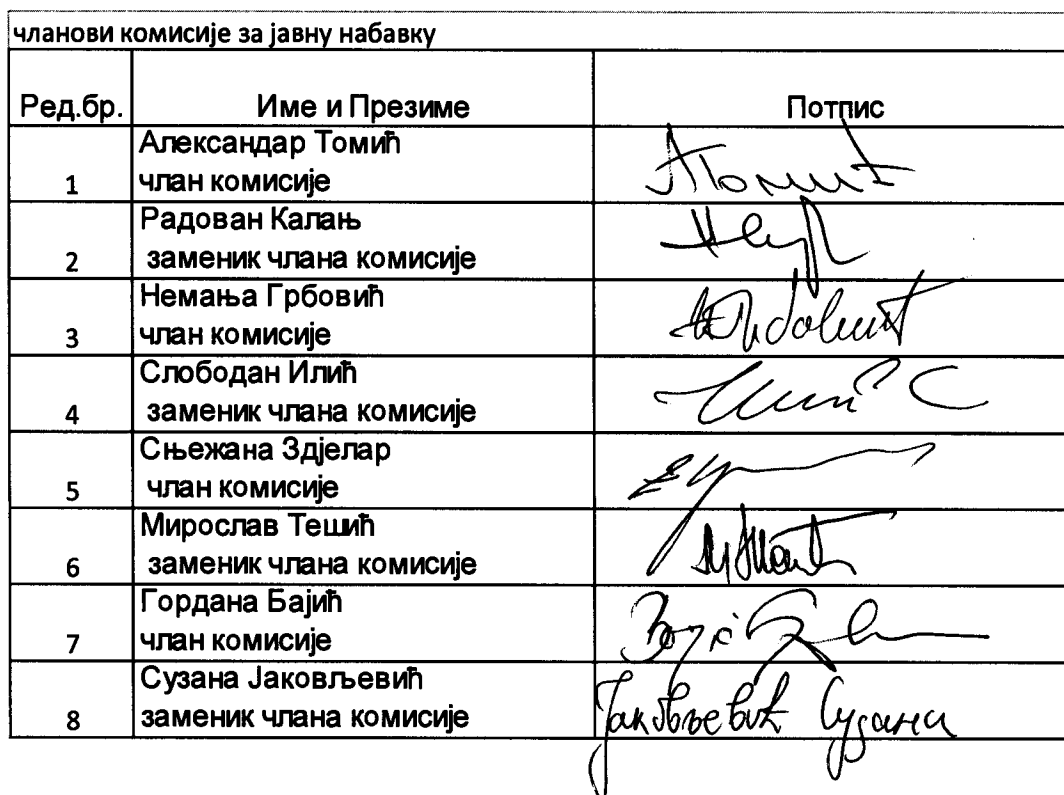 чланови комисије за јавну набавку
Ред.бр. Име и Презиме Потпис
Александар Томић
1 члан комисије
Радован Калањ
2 заменик члана комисије
Немања Грбовић
3 члан комисије
Слободан Илић
4 заменик члана комисије
Сњежана Здјелар
5 члан комисије
Мирослав Тешић
6 заменик члана комисије
Гордана Бајић
7 члан комисије
Сузана Јаковљевић
8 заменик члана комисије Јаковљевић Сузана